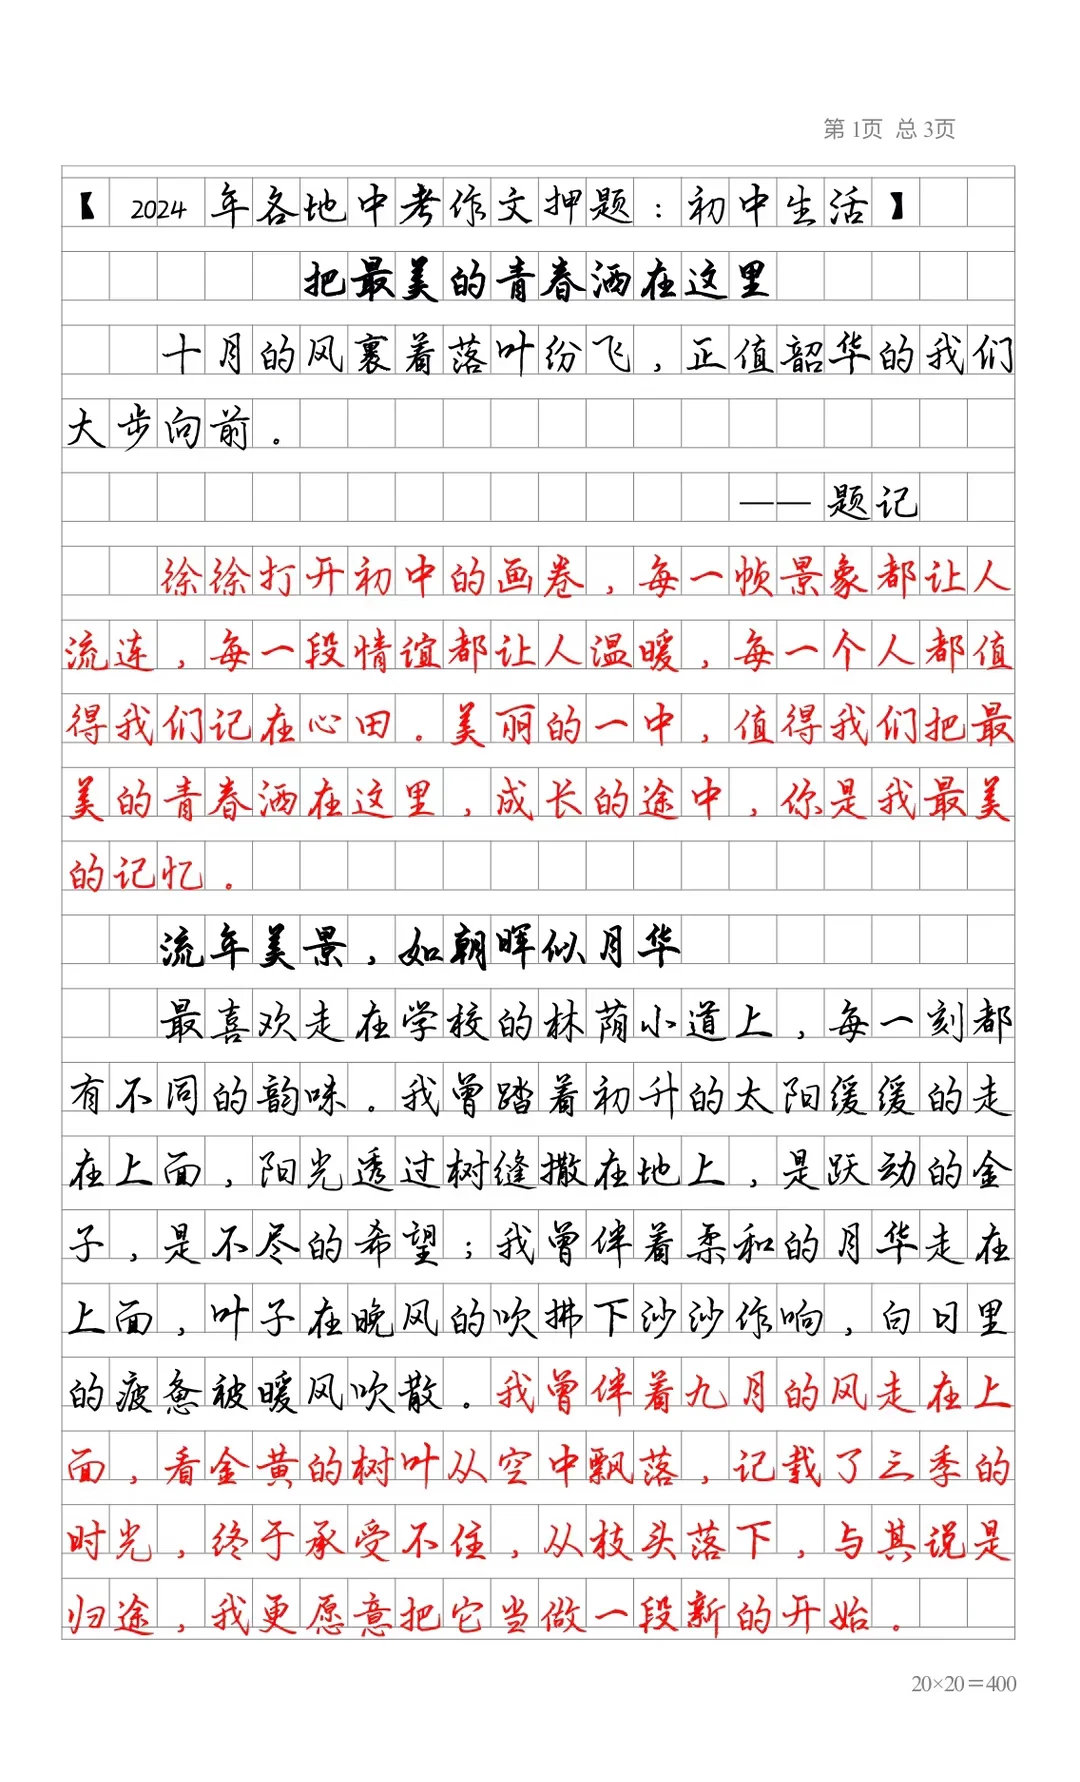 第 1页 总 3页
【 2024 年各地中考作文押题：初中生活】
把最美的青春洒在这里
十月的风裹着落叶纷飞，正值韶华的我们
大步向前。
——题记
徐徐打开初中的画卷，每一帧景象都让人
流连，每一段情谊都让人温暖，每一个人都值
得我们记在心田。美丽的一中，值得我们把最
美的青春洒在这里，成长的途中，你是我最美
的记忆。
流年美景，如朝晖似月华
最喜欢走在学校的林荫小道上，每一刻都
有不同的韵味。我曾踏着初升的太阳缓缓的走
在上面，阳光透过树缝撒在地上，是跃动的金
子，是不尽的希望；我曾伴着柔和的月华走在
上面，叶子在晚风的吹拂下沙沙作响，白日里
的疲惫被暖风吹散。我曾伴着九月的风走在上
面，看金黄的树叶从空中飘落，记载了三季的
时光，终于承受不住，从枝头落下，与其说是
归途，我更愿意把它当做一段新的开始。
20×20＝400